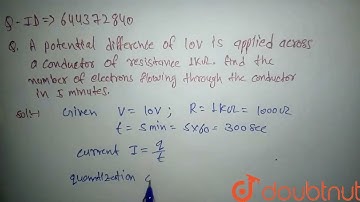 Q-ID => 644372840
Q. A potential difference of 10V is applied across
a conductor of resistance 1KΩ. find the
number of electrons flowing through the conductor
in 5 minutes.
solⁿ:- Given V = 10V ; R = 1KΩ = 1000Ω
t = 5min = 5x60 = 300sec
current I = q/t
quantization
doubtnut